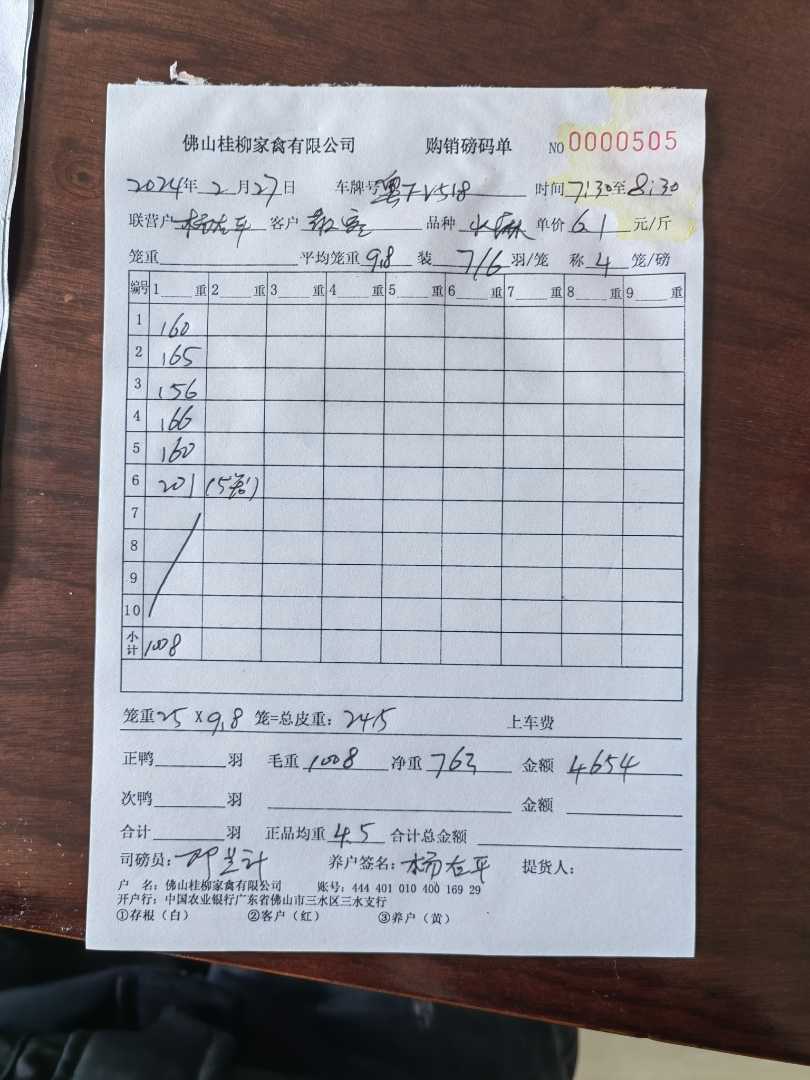 佛山桂柳家禽有限公司 购销磅码单 NO 0000505
2024年 2月27日 车牌号 粤 V518 时间 7:30至8:30
联营户 杨右平 客户 品种 水麻 单价 6.1 元/斤
笼重 平均笼重 9.8 装 7/6 羽/笼 称 4 笼/磅
编号 1 重 2 重 3 重 4 重 5 重 6 重 7 重 8 重 9 重
1 160
2 165
3 156
4 166
5 160
6 201 (5笼)
7
8
9
10
小计 1008
笼重 25 X 9.8 笼=总皮重: 245 上车费
正鸭 羽 毛重 1008 净重 763 金额 4654
次鸭 羽 金额
合计 羽 正品均重 4.5 合计总金额
司磅员: 养户签名: 杨右平 提货人:
户 名: 佛山桂柳家禽有限公司 账号: 444 401 010 400 169 29
开户行: 中国农业银行广东省佛山市三水区三水支行
①存根（白） ②客户（红） ③养户（黄）